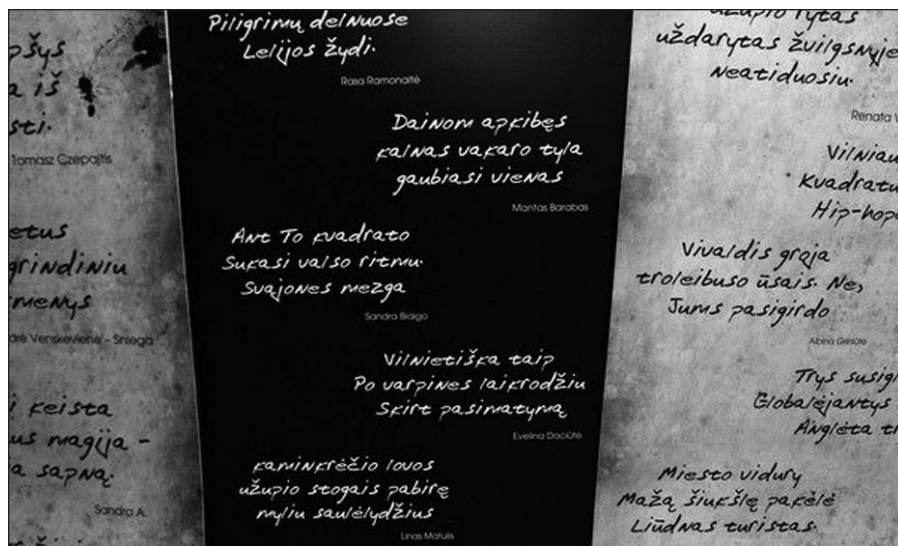 pšys
a iš
sti.
Tomasz Czepajtis
etus
grindiniu
menys
drė Venskevienė - Sniega
i keista
us magija -
a sapną.
Sandra A.
Piligrimų delnuose
Lelijos žydi.
Rasa Ramonaitė
Dainom apkibęs
kalnas vakaro tyla
gaubiasi vienas
Mantas Barabas
Ant To kvadrato
Sukasi valso ritmu.
Svajones mezga
Sandra Blaigo
Vilnietiška taip
Po varpines laikrodžiu
Skirt pasimatymą
Evelina Daciūtė
kaminkrėčio lovos
užupio stogais pabirę
myliu saulėlydžius
Linas Matulis
užupio rytas
uždarytas žvilgsnyje
Neatiduosiu.
Renata V
Vilniau
Kvadratu
Hip-hop
Vivaldis groja
troleibuso ūsais. Ne,
Jums pasigirdo
Albina Griniūtė
Trys susigl
Globalėjantys
Anglėta t
Miesto vidury
Mažą šiukšlę pakėlė
Liūdnas turistas.